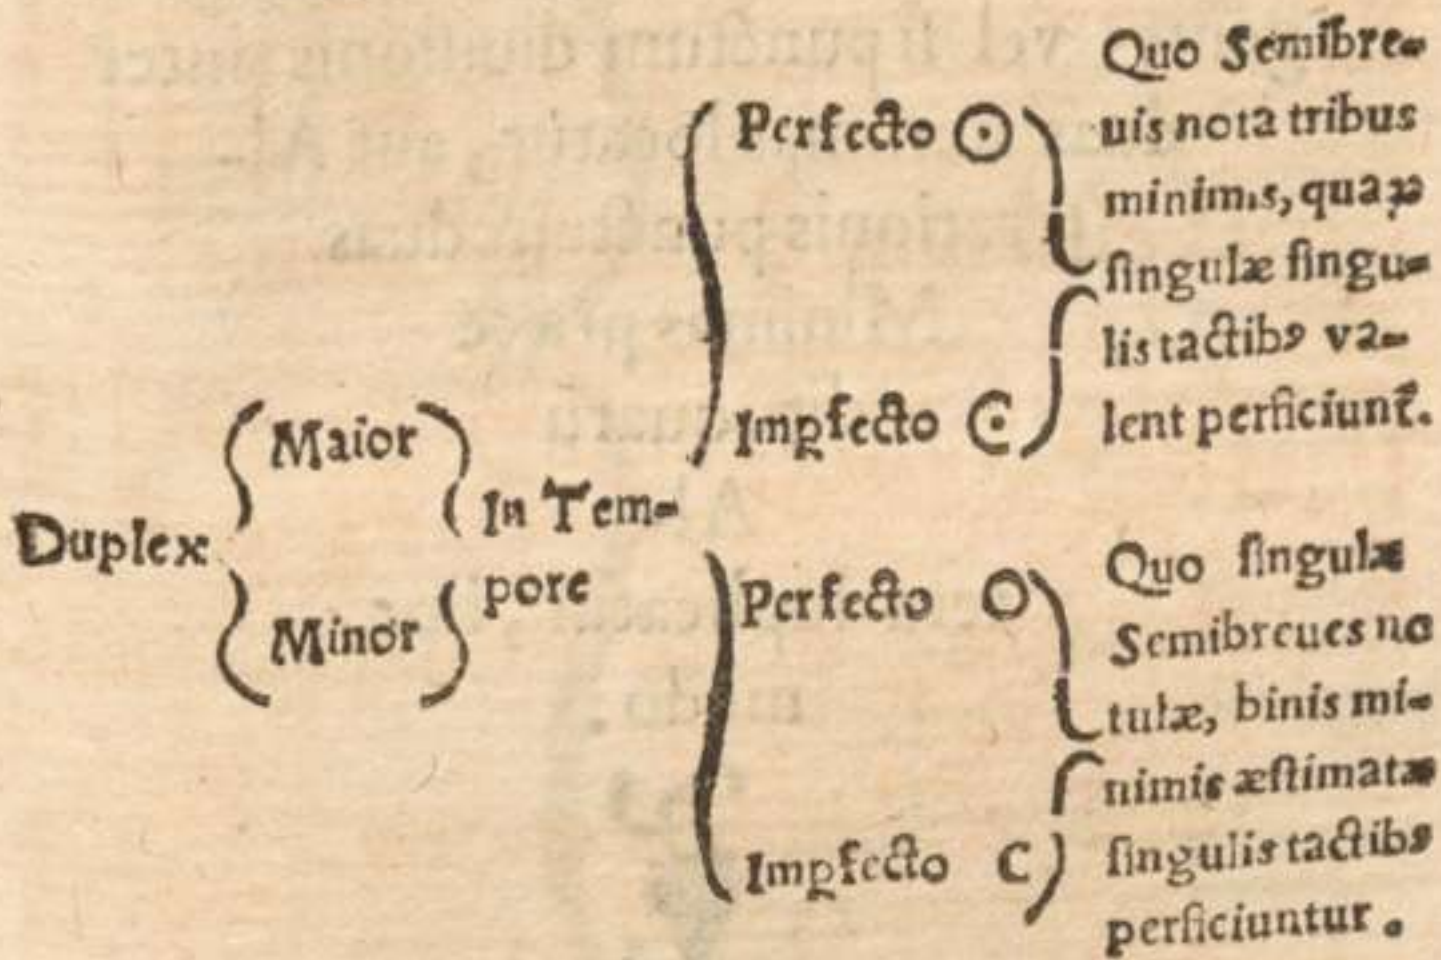 Duplex
Maior
Minor
In Tem-
pore
Perfecto ⊙
Impfecto
Quo Semibre-
uis nota tribus
minimis, quaꝝ
singulæ singu-
lis tactibꝰ va-
lent perficiunt̃.
Perfecto O
Impfecto C
Quo singulæ
Semibreues no
tulæ, binis mi-
nimis æstimatæ
singulis tactibꝰ
perficiuntur.